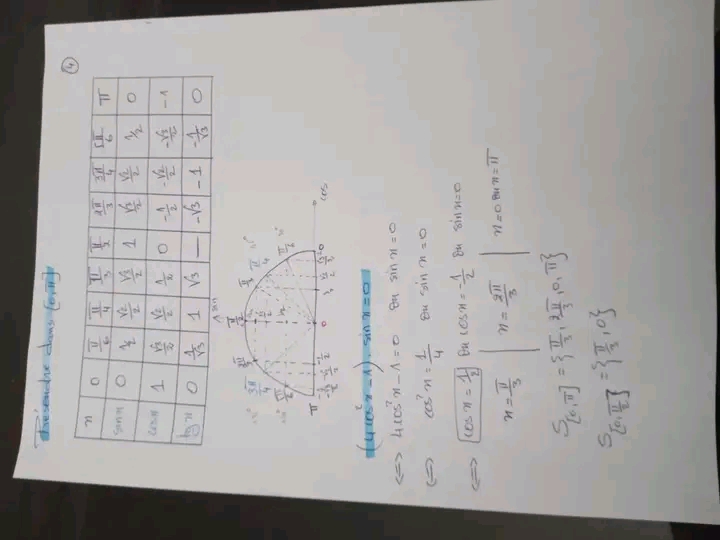 4
Résoudre dans [0,π]
x 0 π/6 π/4 π/3 π/2 2π/3 3π/4 5π/6 π
sin x 0 1/2 √2/2 √3/2 1 √3/2 √2/2 1/2 0
cos x 1 √3/2 √2/2 1/2 0 -1/2 -√2/2 -√3/2 -1
tg x 0 1/√3 1 √3 — -√3 -1 -1/√3 0
sin
cos
(4cos²x-1).sin x=0
⟺ 4cos²x-1=0 ou sin x=0
⟺ cos²x=1/4 ou sin x=0
⟺ cos x=1/2 ou cos x=-1/2 ou sin x=0
x=π/3 | x=2π/3 | x=0 ou x=π
S[0,π]={π/3, 2π/3, 0, π}
S[0,π/2]={π/3, 0}